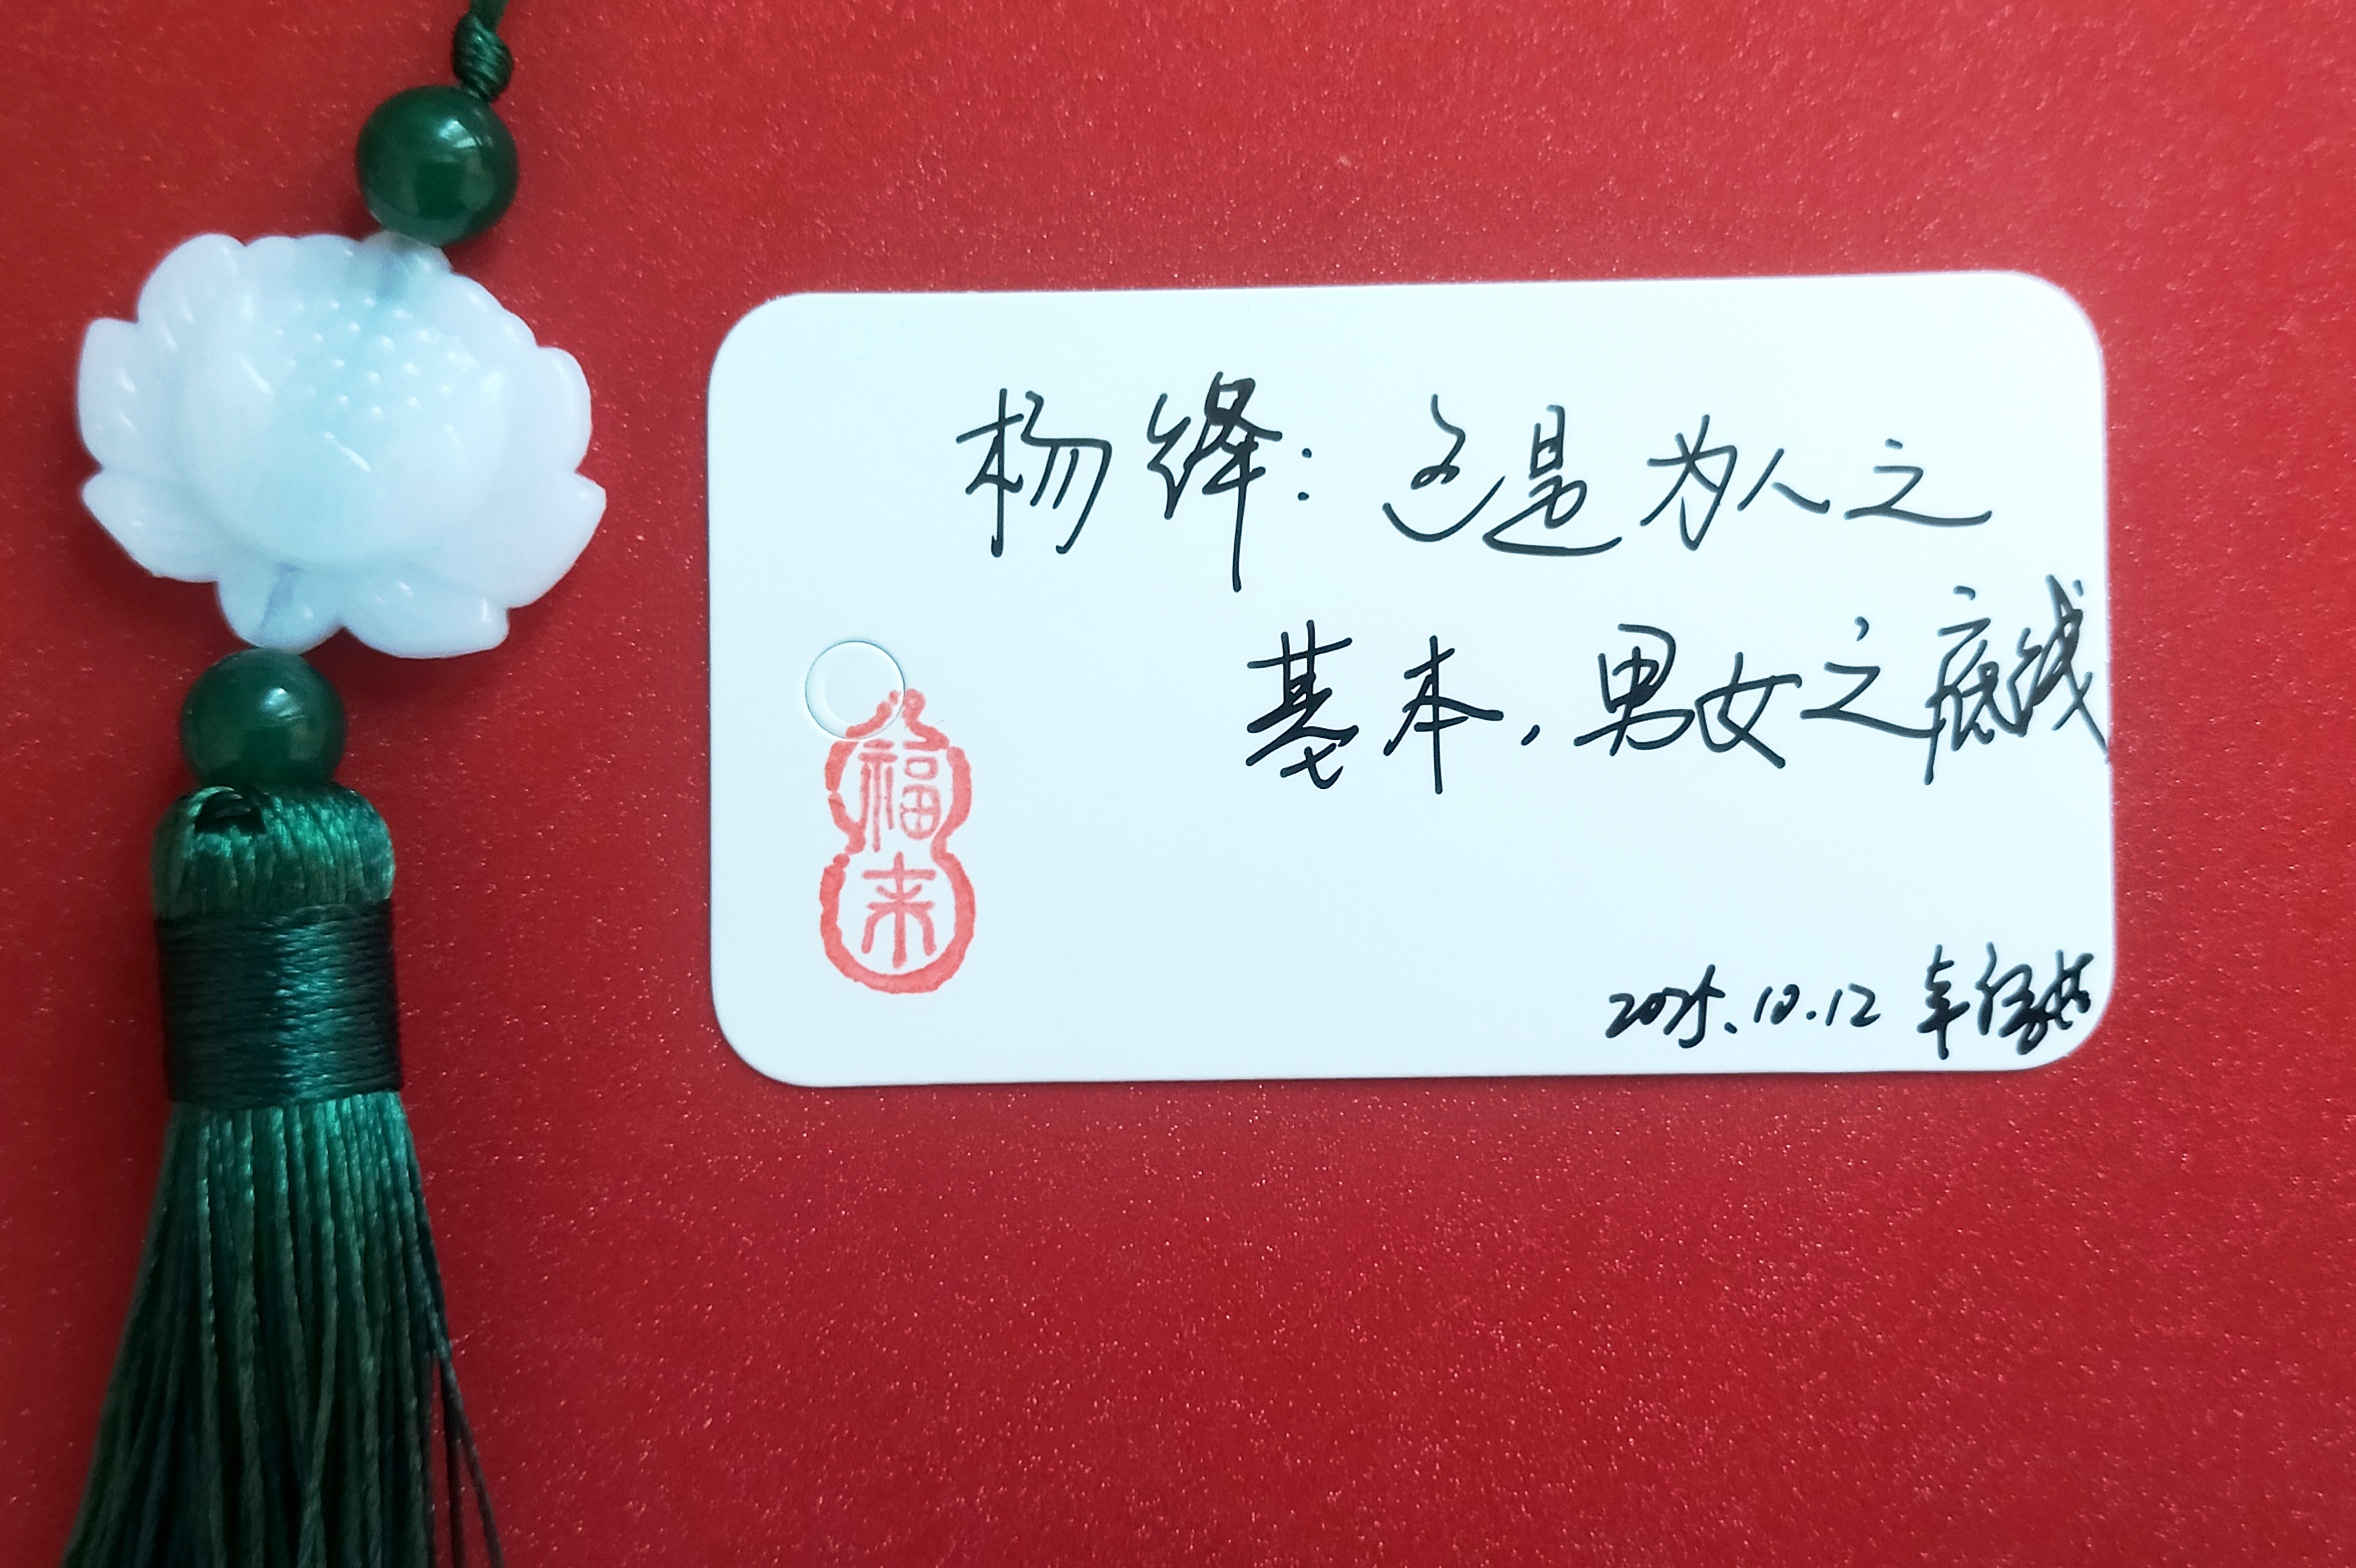 杨绛：这是为人之
基本，男女之底线
福来
2025.10.12